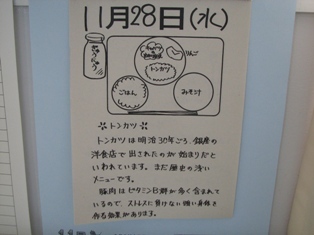 11月28日(水)
ぎゅうにゅう
りんご
トンカツ
ごはん
みそ汁
✲トンカツ✲
トンカツは明治30年ごろ、銀座の
洋食店で出されたのが始まりだと
いわれています。まだ歴史の浅い
メニューです。
豚肉はビタミンB群が多く含まれて
いるので、ストレスに負けない強い身体を
作る効果があります。